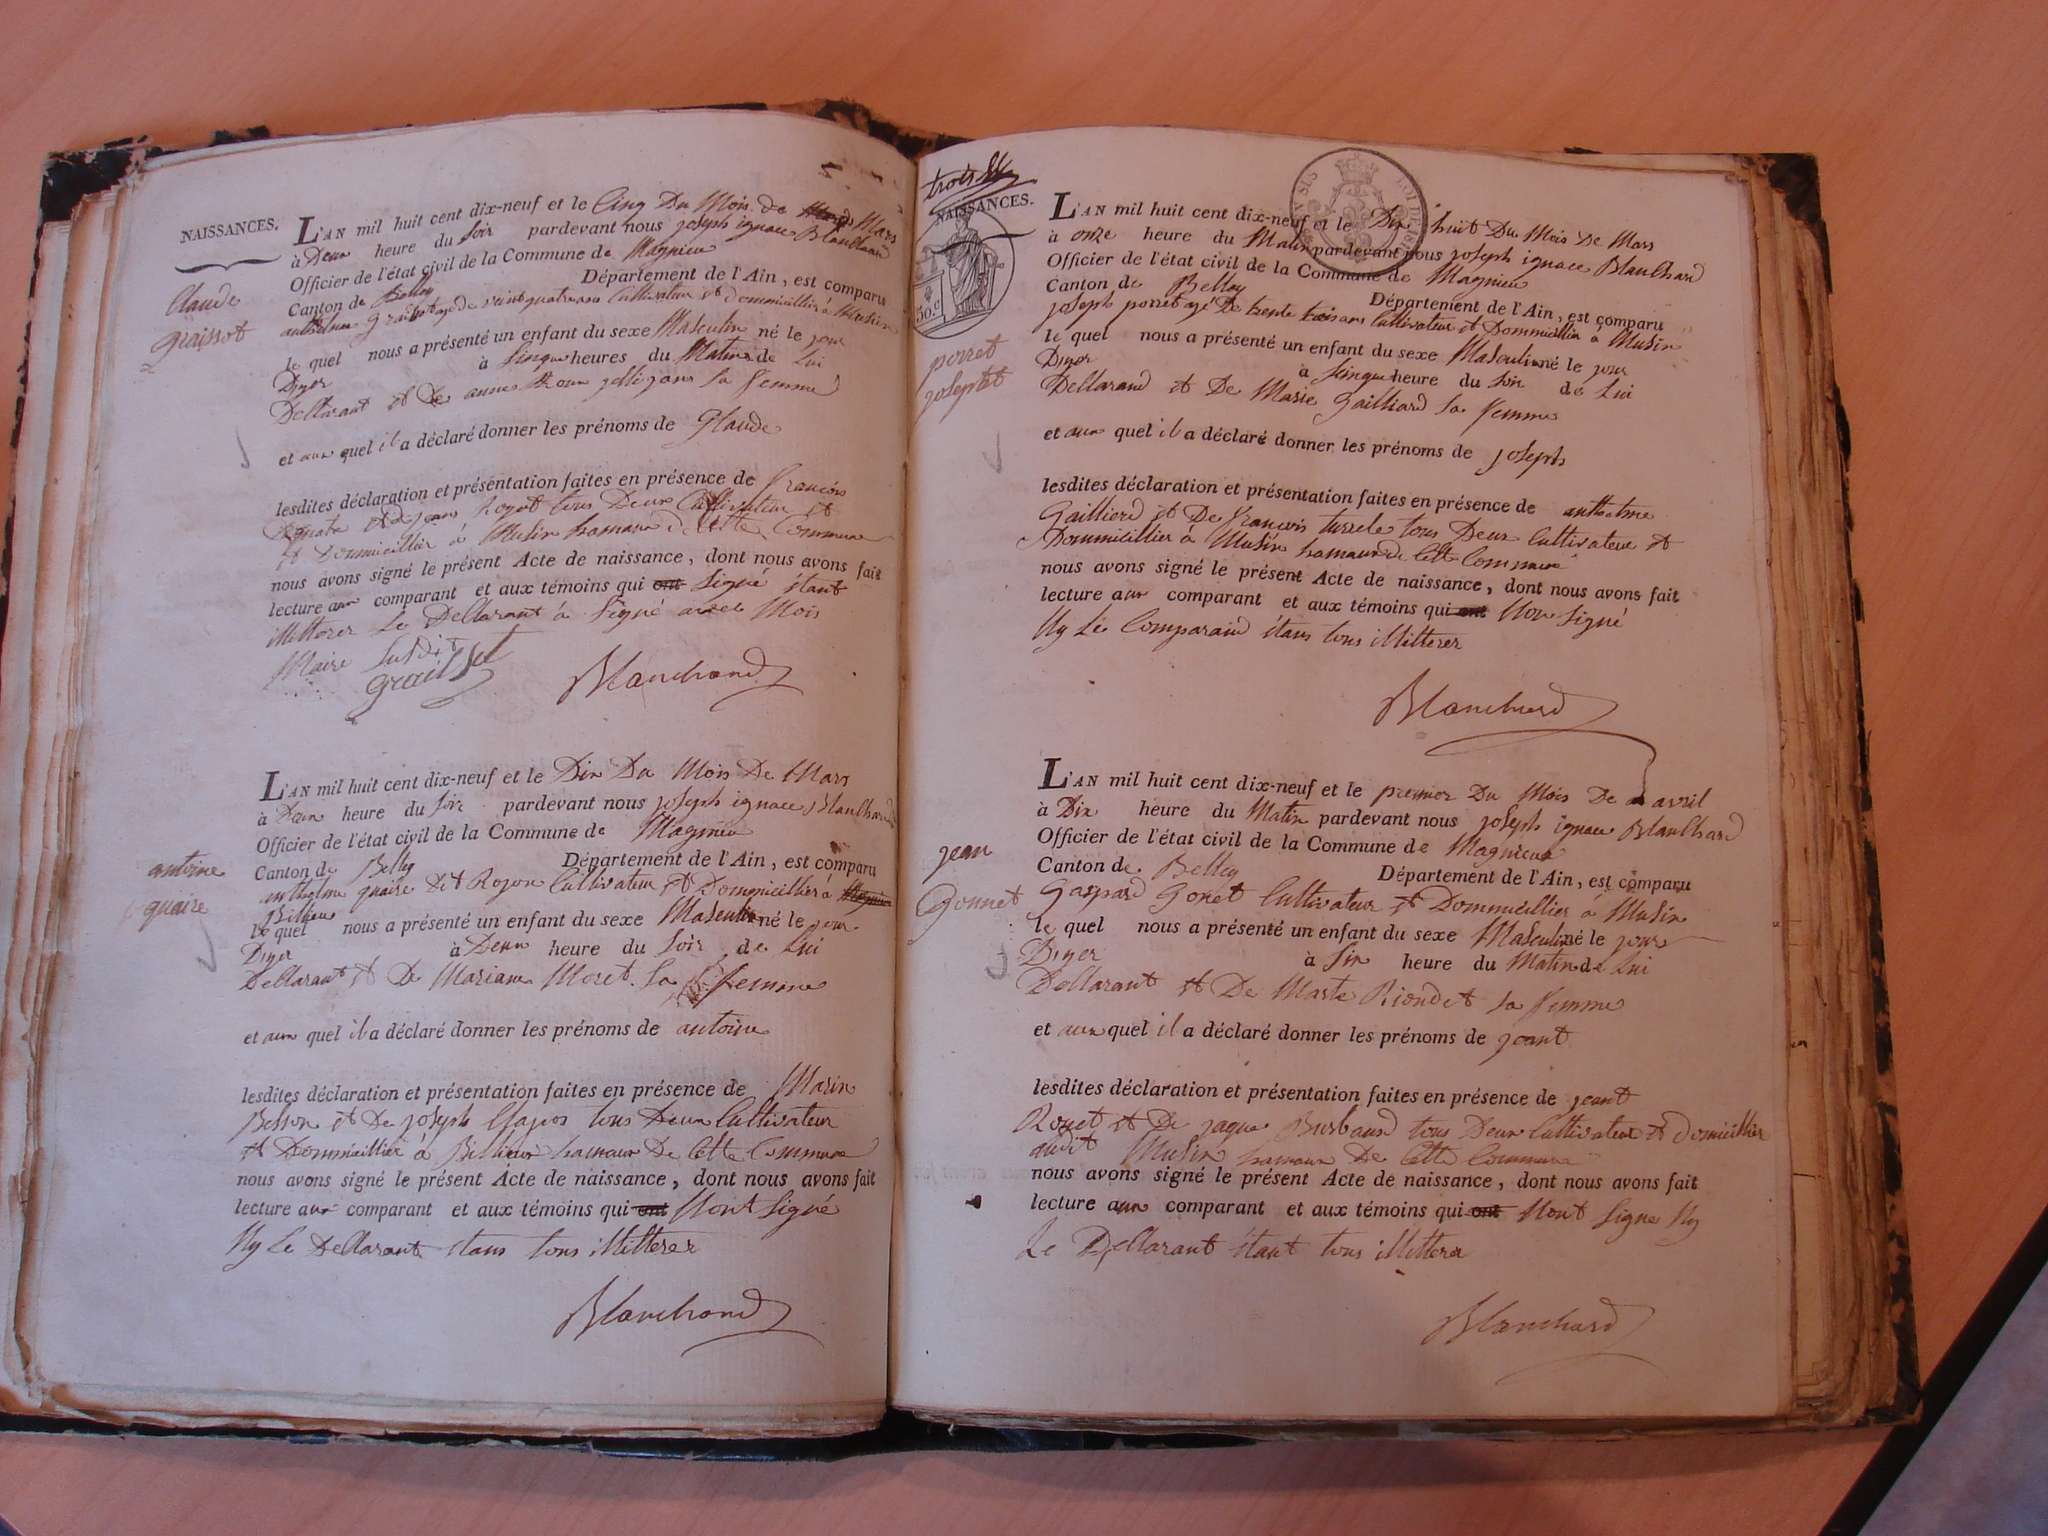 NAISSANCES.
Claude
graissot
L'AN mil huit cent dix-neuf et le Cinq Du Mois de Mars
à Deux heure du Soir pardevant nous joseph ignace Blanchard
Officier de l'état civil de la Commune de Magnieu
Canton de Belley Département de l'Ain, est comparu
anthelme graissot age de vaint quatre ans Cultivateur et dommicillier à Musin
le quel nous a présenté un enfant du sexe Masculin né le jour
Dyer à Sinque heures du Matin de Lui
Dellarant et De anne sa femme
et aux quel il a déclaré donner les prénoms de Glaude
lesdites déclaration et présentation faites en présence de François
et de jean Royet tous Deux Cultivateur et
et Dommicillier à Musin hamaux de Cette Commune
nous avons signé le présent Acte de naissance, dont nous avons fait
lecture aux comparant et aux témoins qui ont Signé étant
illitterer Le Dellarant à Signé avec Mois
Maire Susdit
Graissot
Blanchard
antoine
quaire
L'AN mil huit cent dix-neuf et le Dix Du Mois De Mars
à Deux heure du Soir pardevant nous joseph ignace Blanchard
Officier de l'état civil de la Commune de Magnieu
Canton de Belley Département de l'Ain, est comparu
anthelme quaire Dit Rojon Cultivateur et Dommicillier à Magnieu
Billieu
le quel nous a présenté un enfant du sexe Masculin né le jour
Dyer à Deux heure du Soir de Lui
Dellarant et De Mariane Moret Sa femme
et aux quel il a déclaré donner les prénoms de antoine
lesdites déclaration et présentation faites en présence de Marin
Besson et De joseph tous Deux Cultivateur
et Dommicillier à Billieux hamaux De Cette Commune
nous avons signé le présent Acte de naissance, dont nous avons fait
lecture aux comparant et aux témoins qui ont Nont Signé
Ny Le Dellarant étans tous illitterer
Blanchard
trois
NAISSANCES.
50.c
porret
joseptt
L'AN mil huit cent dix-neuf et le Dix huit Du Mois De Mars
à onze heure du Matin pardevant nous joseph ignace Blanchard
Officier de l'état civil de la Commune de Magnieu
Canton de Belley Département de l'Ain, est comparu
joseph porret agé De trente trois ans Cultivateur et Dommicillier à Musin
le quel nous a présenté un enfant du sexe Masculin né le jour
Dyer à Sinque heure du Soir de Lui
Dellarand et De Marie Gailliard Sa femme
et aux quel il a déclaré donner les prénoms de joseph
lesdites déclaration et présentation faites en présence de anthelme
Gaillierd et De François turrele tous Deux Cultivateur et
Dommicillier à Musin hamaux de Cette Commune
nous avons signé le présent Acte de naissance, dont nous avons fait
lecture aux comparant et aux témoins qui ont Non Signé
Ny Le Comparand étans tous illitterer
Blanchard
jean
Gonnet
L'AN mil huit cent dix-neuf et le premier Du Mois De avril
à Dix heure du Matin pardevant nous joseph ignace Blanchard
Officier de l'état civil de la Commune de Magnieux
Canton de Belley Département de l'Ain, est comparu
Gaspard Gonet Cultivateur et Dommicillier à Musin
le quel nous a présenté un enfant du sexe Masculin né le jour
Dyer à Six heure du Matin de Lui
Dellarant et De Marte Riondet Sa femme
et aux quel il a déclaré donner les prénoms de jeant
lesdites déclaration et présentation faites en présence de jeant
Royet et De jaque Burbaud tous Deux Cultivateur et domicillier
audit Musin hamaux De Cette Commune
nous avons signé le présent Acte de naissance, dont nous avons fait
lecture aux comparant et aux témoins qui ont Nont Signe Ny
Le Dellarant étant tous illitterer
Blanchard